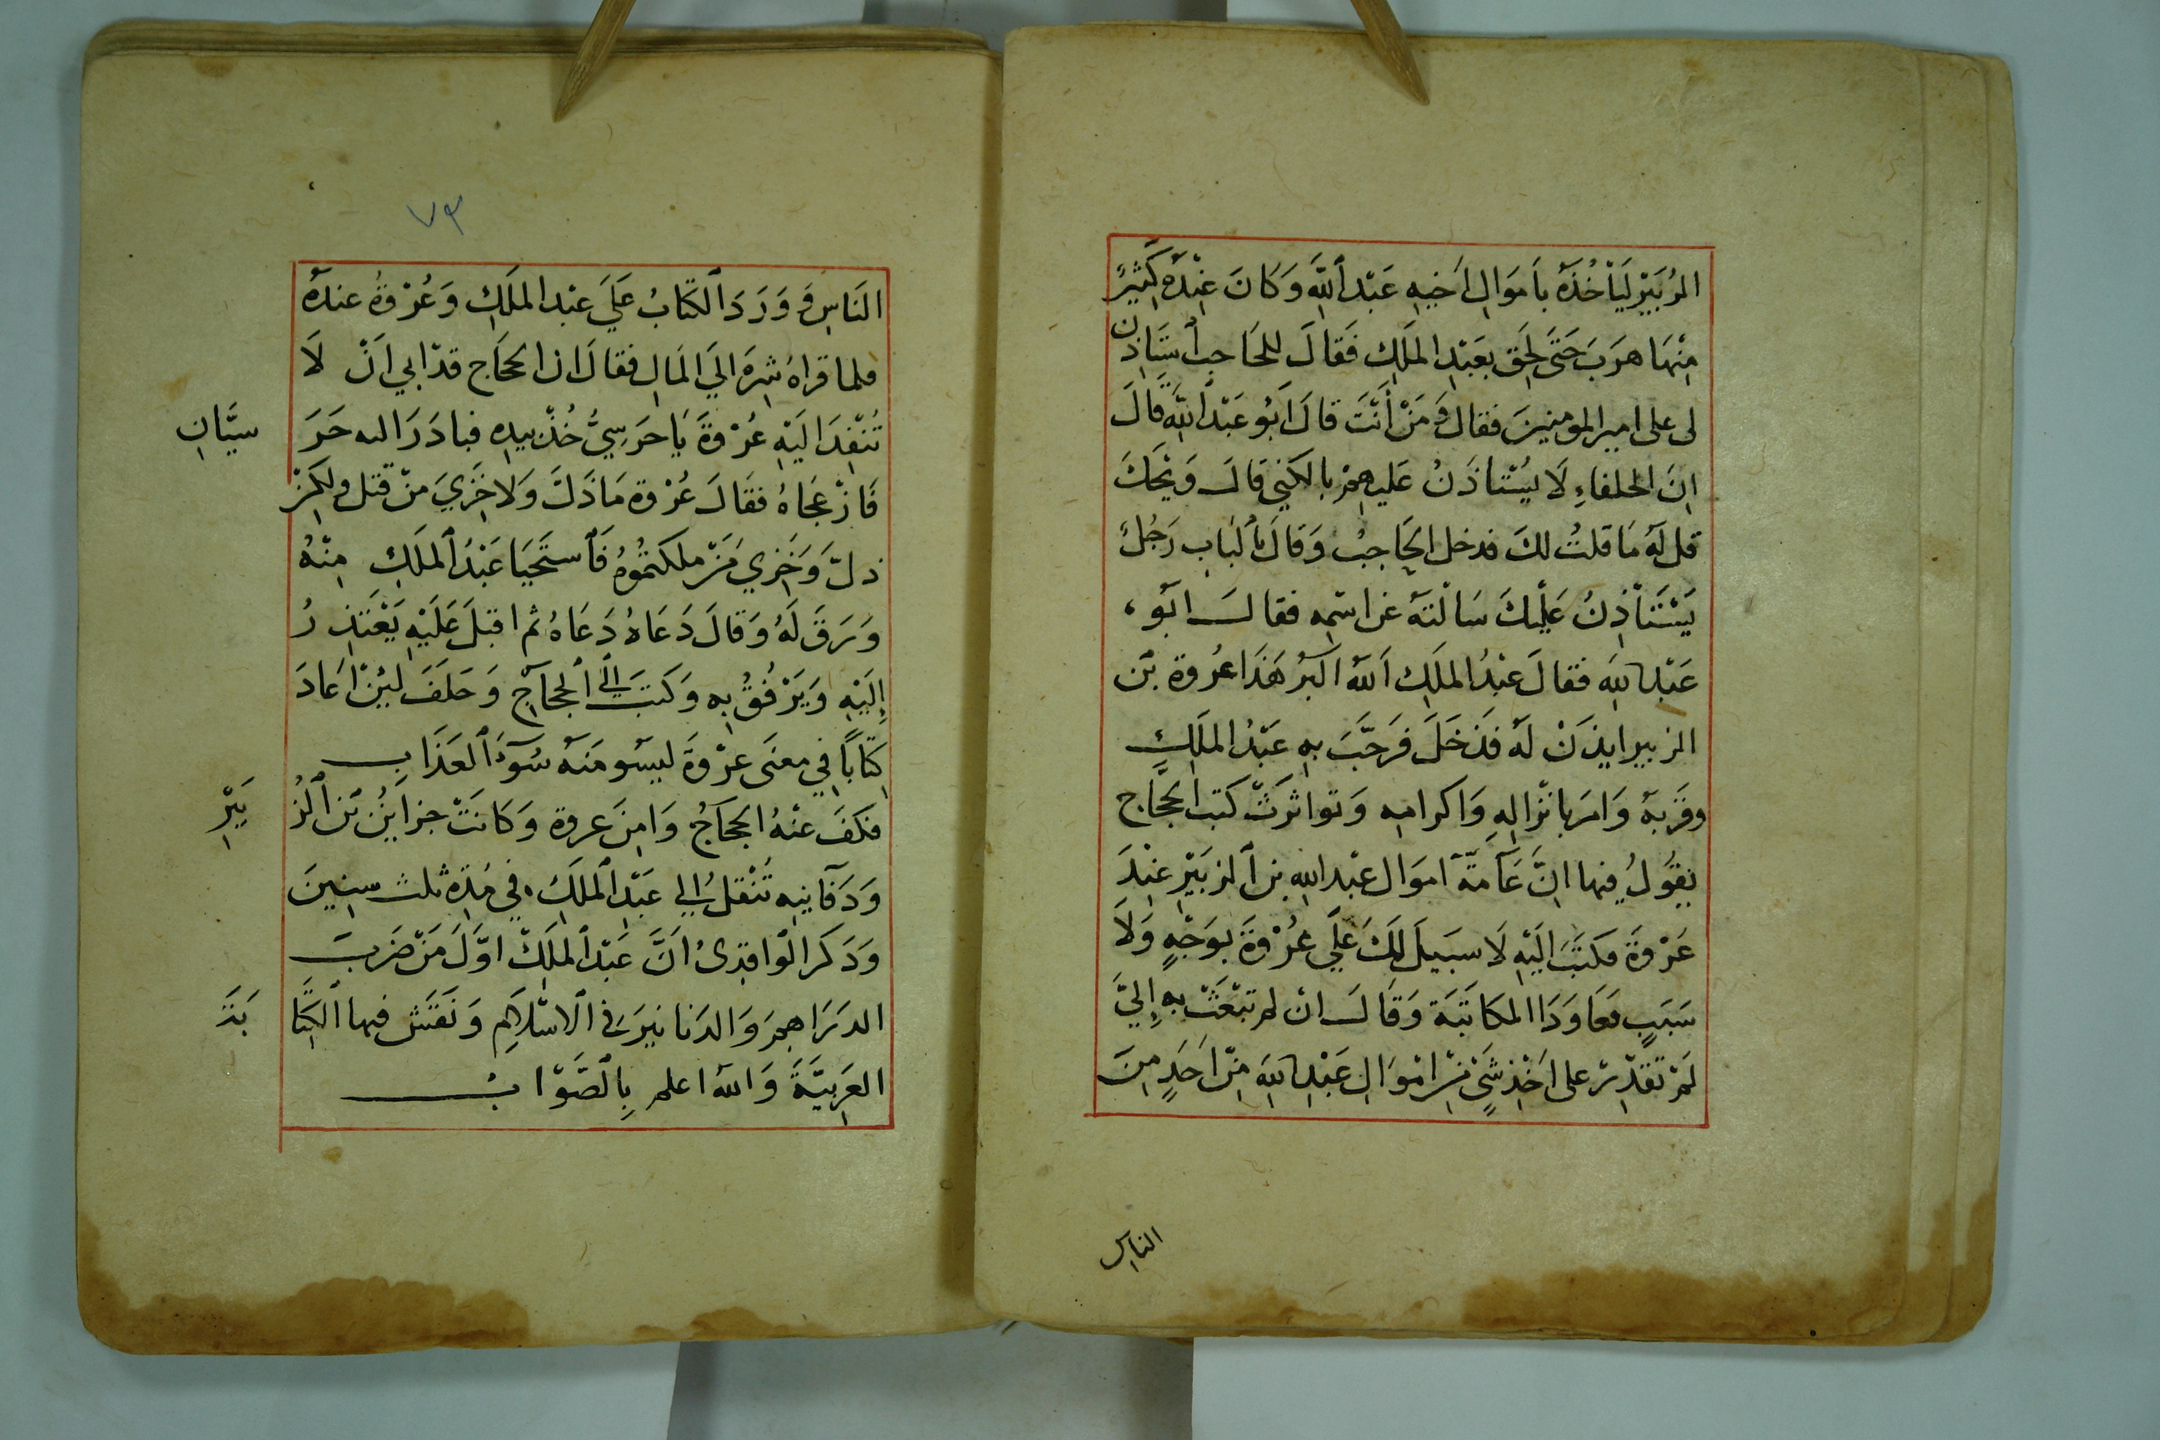 الزُبَيْر لَيَأخُذَهُ بأموَالِ اَخيهِ عَبْد ٱللَّهِ وَكانَ عِنْدَهُ كَثِيرٌ
مِنْهَا هرَبَ حَتَى لحِقَ بعَبْدِ الملَكِ فَقالَ للحَاجِبِ ٱستَاذِن
لى على امير المومنِينَ فقالَ وَمَنْ أَنْتَ قالَ ابُو عَبْد ٱللَّهِ قالَ
انَ الخلفاءِ لَا يُسْتاذَنُ عَليهِمْ بالكنيَ قالَ وَيْحَكَ
قل لَهُ مَا قلتُ لكَ فدخلَ الحَاجبُ وَقالَ بٱلبَابِ رَجُلٌ
يَسْتَاْذِنُ عَلَيْكَ سَالْتهُ عن اسْمِهِ فقالَ ابُو
عَبْدِ اللهِ فقالَ عَبْدُ الملَكِ اَللهُ اَكبَرُ هَذَا عُروَة بْن
الزبير ايذَنْ لَهُ فدَخَلَ فرَحَّبَ بهِ عَبْدُ الملَكِ
وقرَبهُ وَامَرَ بانْزالِهِ وَاكرامِه وَتواترَتْ كتب الحَجَّاج
يقُولُ فيها انَّ عَامَّة اموَال عبْد اللهِ بن ٱلزبَيْرِ عِنْدَ
عُرْوَةَ فكتَبَ اليَهِ لَا سبَيلَ لكَ عَلَي عُرْوَةَ بوَجْهٍ وَلَا
سَبَبٍ فعَاوَدَ المكاتَبَة وَقالَ انْ لم تبْعَثْ بهِ إِليَّ
لَمْ تقدِرْ على اَخْذِ شَيْ مِنْ امْوَالِ عَبْدِ اللهِ مِنْ اَحَدٍ مِنَ
الناسِ
٧٣
النَاسِ وَوَرَدَ ٱلكتَابُ عَلَيَ عبْد الملَكِ وَعُرْوةُ عندهُ
فلما قراهُ شرِهَ الَي المَالِ فقالَ ان الحجَاج قدْ ابي اَنْ لَا
تُنْفِذَ اليَهِ عُرْوةَ يَا حرَسِيُّ خُذ بيدِهِ فبادَرَ اليه حَرَ
سيَّانِ
فَازْعَجَاهُ فقَالَ عُرْوة مَا ذَلَّ وَلا خَزِيَ مَنْ قتل ولكِنْ
ذلَّ وَخَزِي مَنْ ملكتُمُوُهُ فَٱستَحيَا عَبْدُ ٱلملَكِ مِنْهُ
وَرَقَ لَهُ وَقالَ دَعَاهُ دَعَاهُ ثم اقبَلَ عَلَيَهِ يَعْتَذِرُ
إِلَيْهِ وَيَرْفُقُ بِهِ وَكتَبَ إلَى ٱلحجاجِ وَحلَفَ ليئنْ اعَادَ
كِتَابًا في معنَى عرْوَةَ ليسُومَنهُ سُوءَ ٱلعَذَابِ
فكفَ عنْهُ الحجاجُ وَامِنَ عروة وَكانَتْ خزاينُ بن ٱلزُ
بَيْرِ
وَدَفاينِه تُنْقلُ إلي عَبْدِ ٱلمَلَكِ في مُدَةِ ثلث سِنِينَ
وَذكَر الوَاقِدِىُ اَنَّ عَبْد ٱلملَكِ اوَّلَ مَنْ ضَرَبَ
الدرَاهِمَ وَالدَنانيرَ فى ٱلاسْلاَمِ وَنَقَشَ فيها ٱلكِتَا
بَةَ
العَرَبيَّةَ وَاللهُ اعلم بِٱلصَّوْابُ